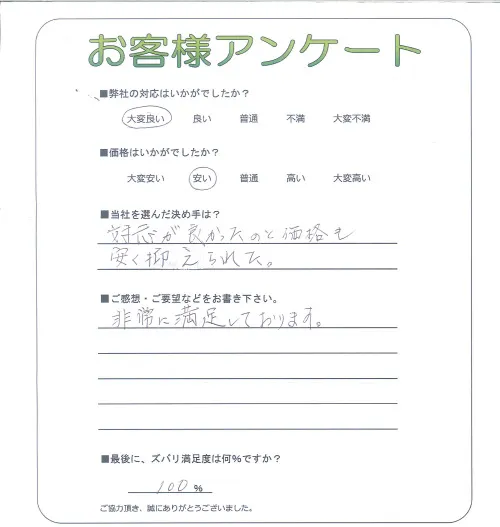 お客様アンケート
■弊社の対応はいかがでしたか？
大変良い 良い 普通 不満 大変不満
■価格はいかがでしたか？
大変安い 安い 普通 高い 大変高い
■当社を選んだ決め手は？
対応が良かったのと価格も
安く抑えられた。
■ご感想・ご要望などをお書き下さい。
非常に満足しております。
■最後に、ズバリ満足度は何％ですか？
100 %
ご協力頂き、誠にありがとうございました。